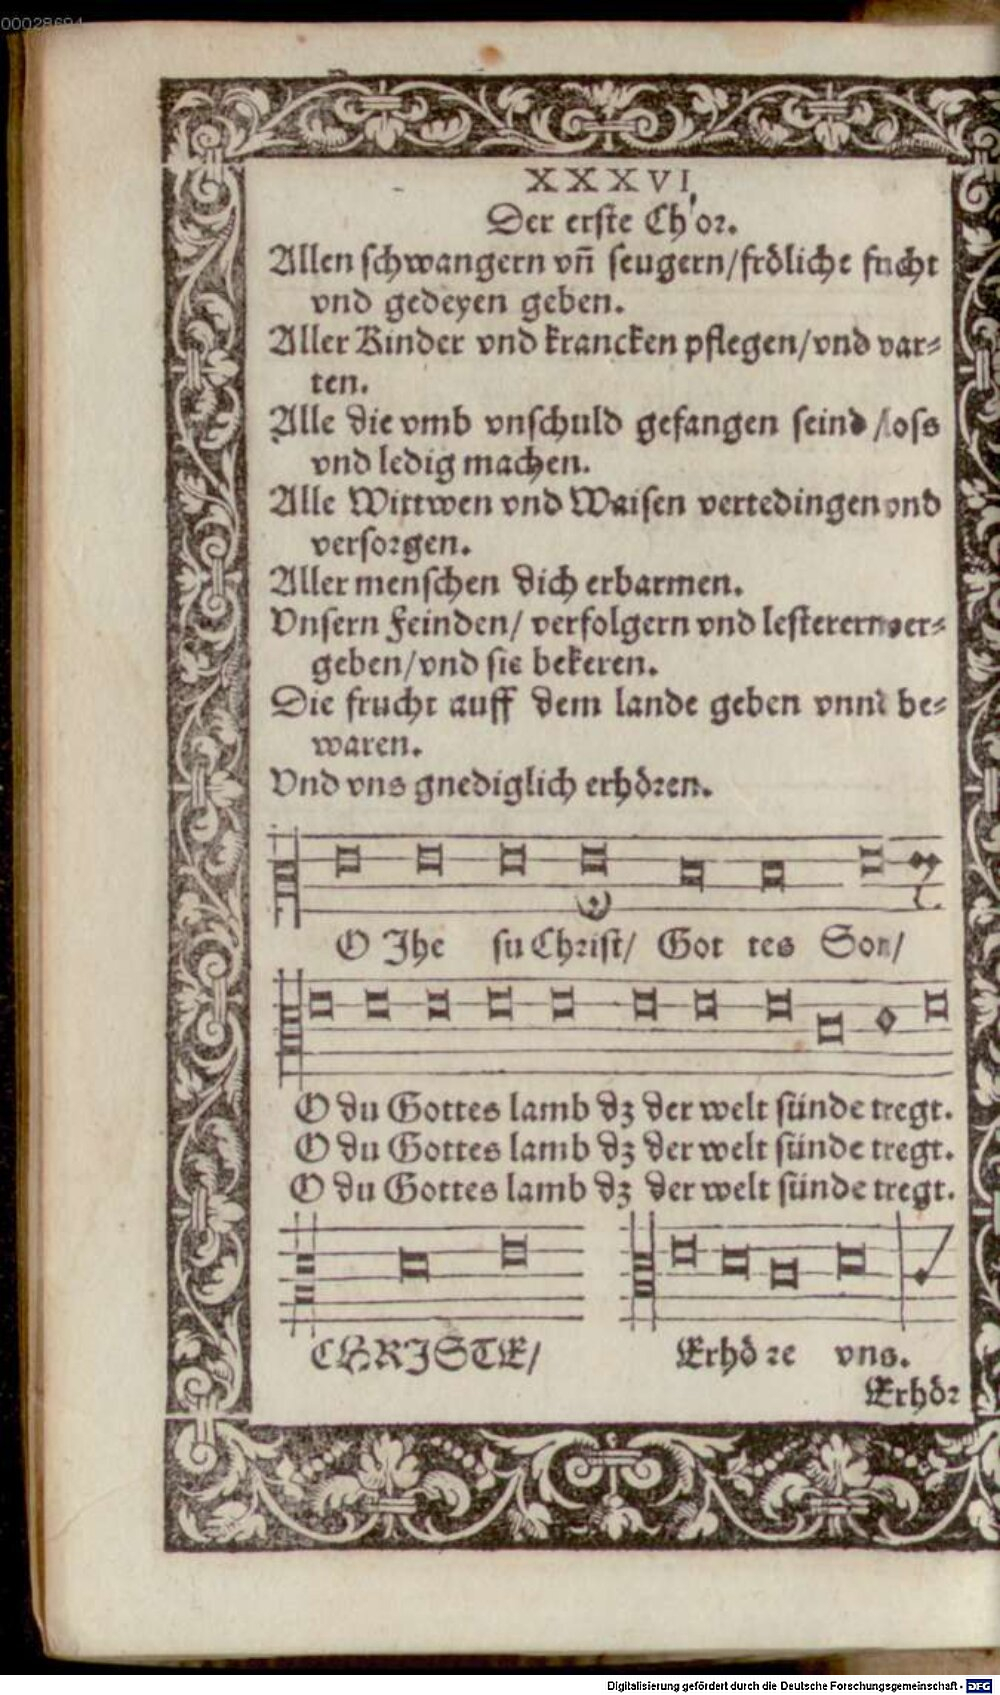 00028694
XXXVI.
Der erste Chor.
Allen schwangern vñ seugern/fröliche frucht
vnd gedeyen geben.
Aller Kinder vnd krancken pflegen/vnd war⸗
ten.
Alle die vmb vnschuld gefangen seind/loss
vnd ledig machen.
Alle Wittwen vnd Waisen vertedingen vnd
versorgen.
Aller menschen dich erbarmen.
Vnsern Feinden/ verfolgern vnd lesterern ver⸗
geben/vnd sie bekeren.
Die frucht auff dem lande geben vnnd be⸗
waren.
Vnd vns gnediglich erhören.
O Jhe su Christ/ Got tes Son/
O du Gottes lamb dz der welt sünde tregt.
O du Gottes lamb dz der welt sünde tregt.
O du Gottes lamb dz der welt sünde tregt.
CHRISTE/ Erhö re vns.
Erhör
Digitalisierung gefördert durch die Deutsche Forschungsgemeinschaft - DFG